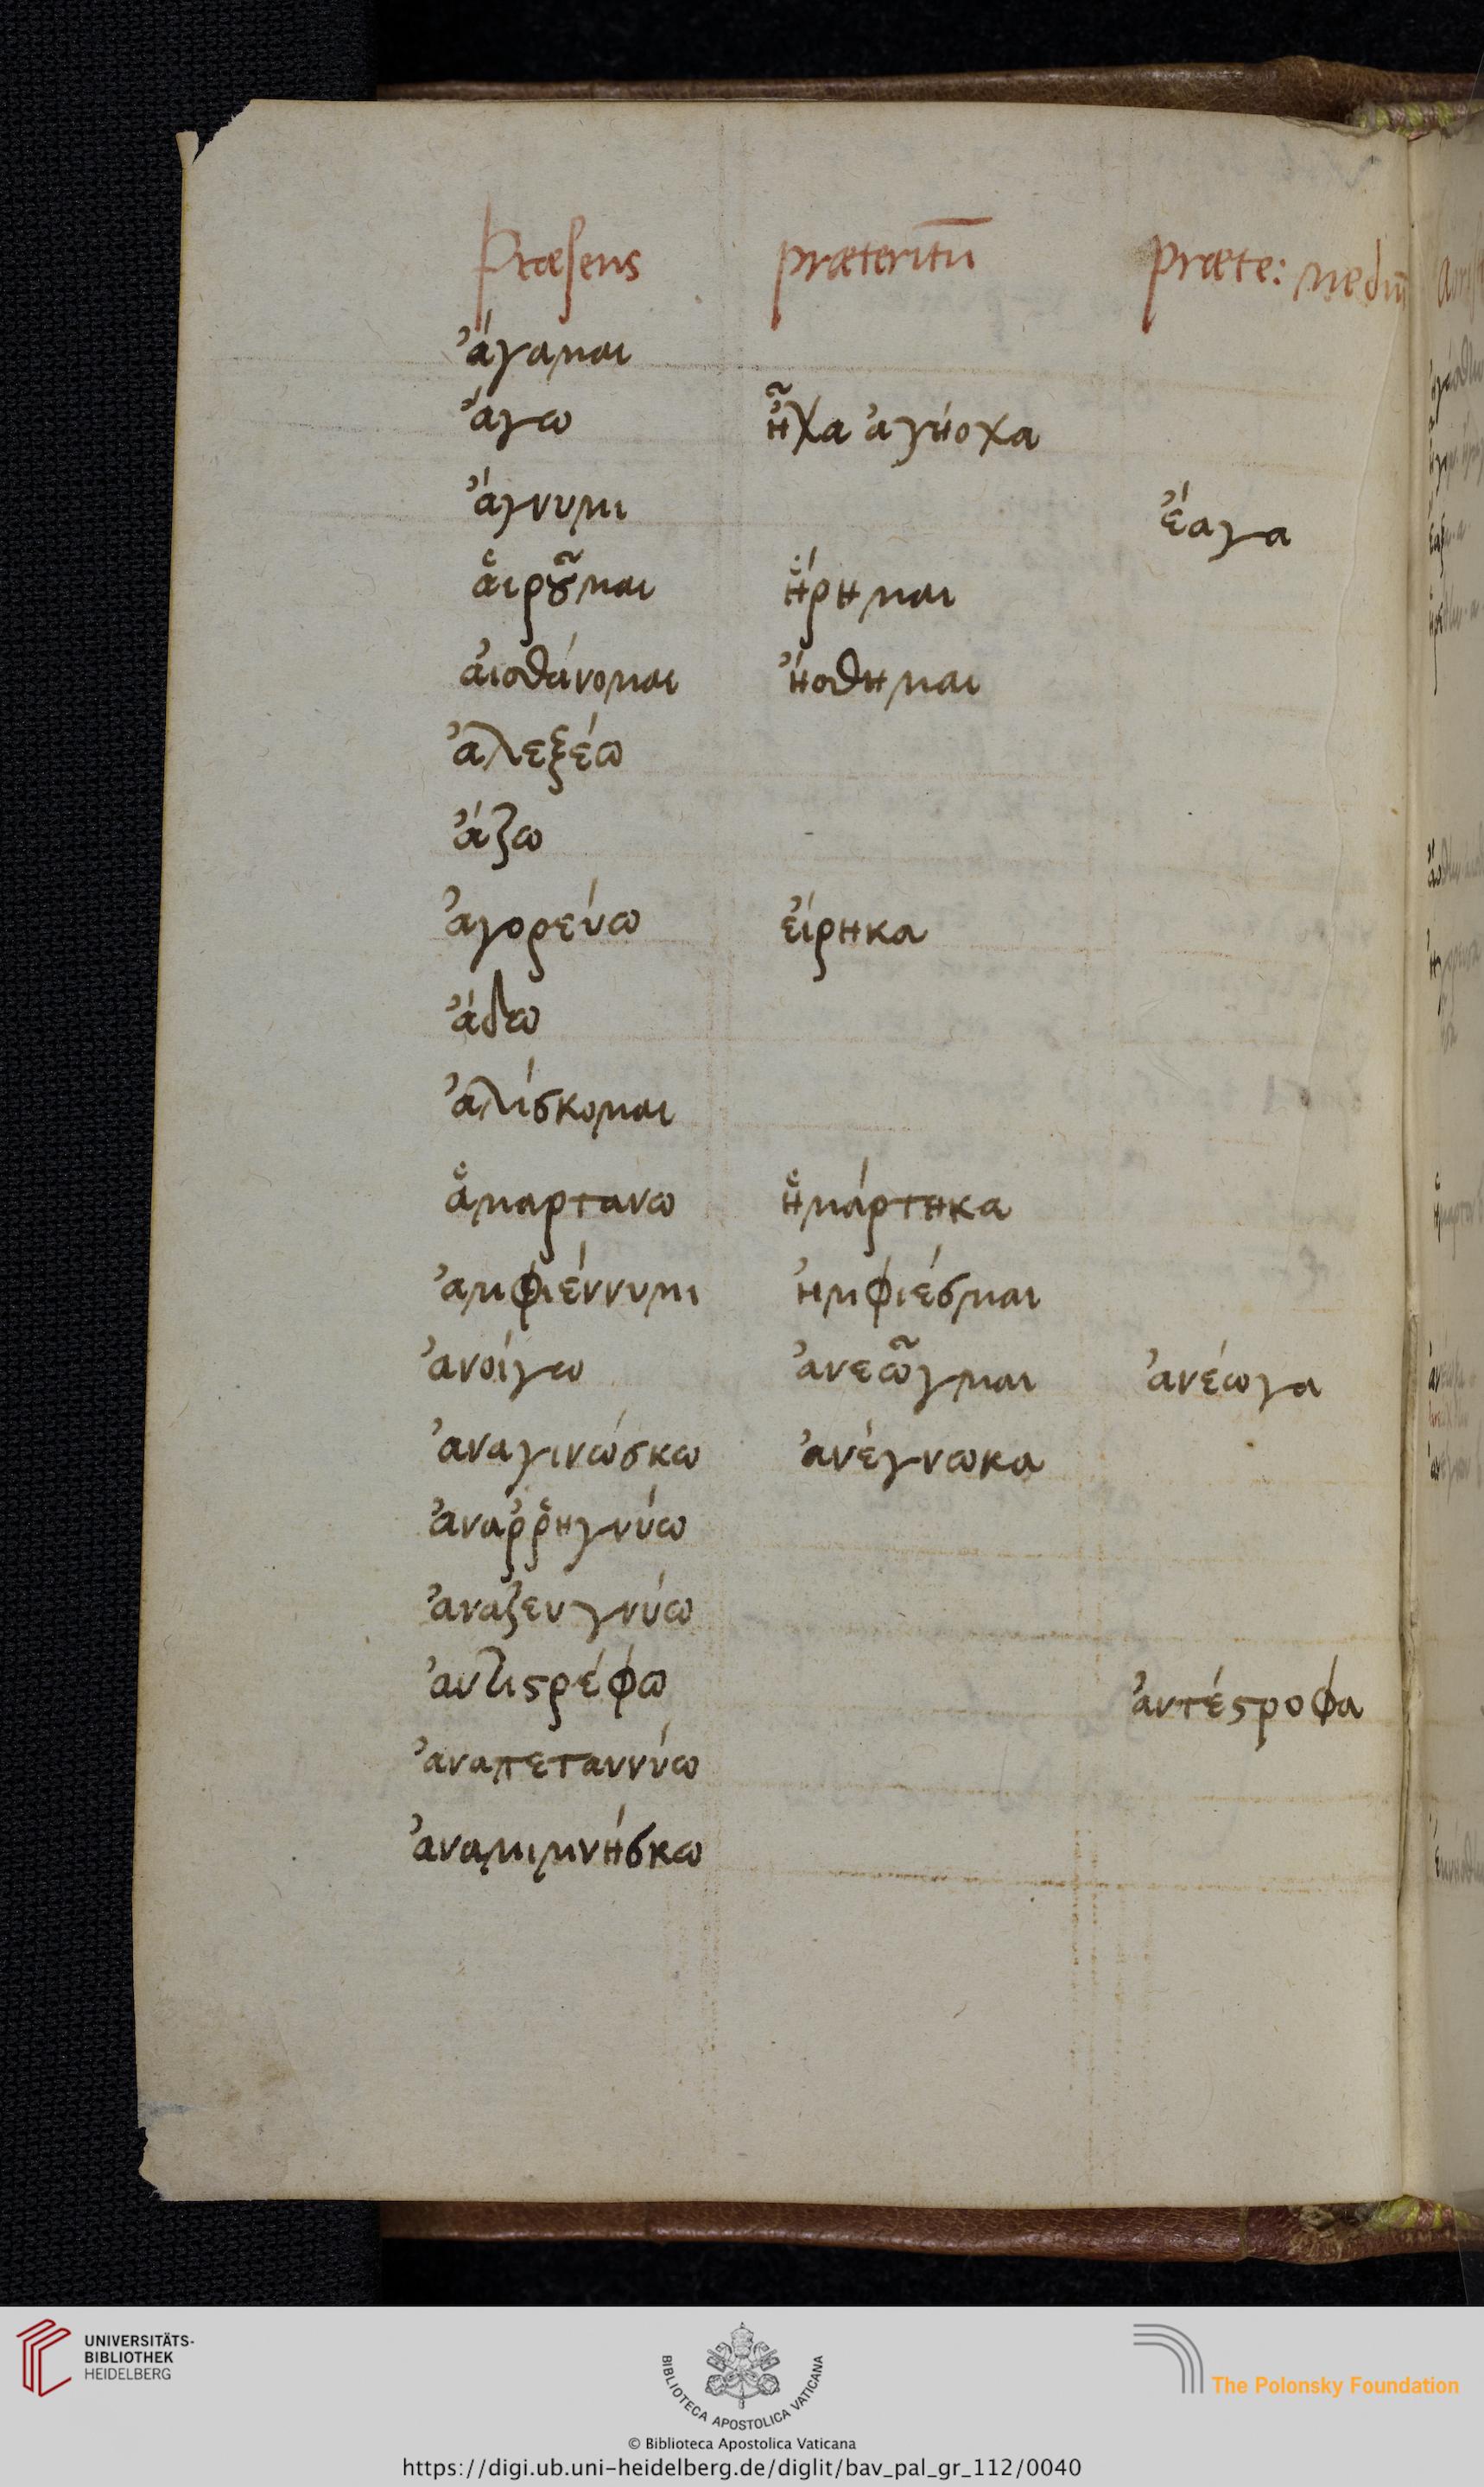 Præsens præteritū præte: mediū
ἄγαμαι
ἄγω ἦχα ἀγήοχα
ἄγνυμι ἔαγα
ἁιροῦμαι ἥρημαι
ἀισθάνομαι ἤσθημαι
ἀλεξέω
ἄζω
ἀγορεύω ἔιρηκα
ἄδω
ἀλίσκομαι
ἁμαρτανω ἡμάρτηκα
ἀμφιέννυμι ἠμφιέσμαι
ἀνοίγω ἀνεῶγμαι ἀνέωγα
ἀναγινώσκω ἀνέγνωκα
ἀναῤῥηγνύω
ἀναζευγνύω
ἀντιϛρέφω ἀντέϛροφα
ἀναπεταννύω
ἀναμιμνήσκω
UNIVERSITÄTS-
BIBLIOTHEK
HEIDELBERG
BIBLIOTECA APOSTOLICA VATICANA
The Polonsky Foundation
© Biblioteca Apostolica Vaticana
https://digi.ub.uni-heidelberg.de/diglit/bav_pal_gr_112/0040